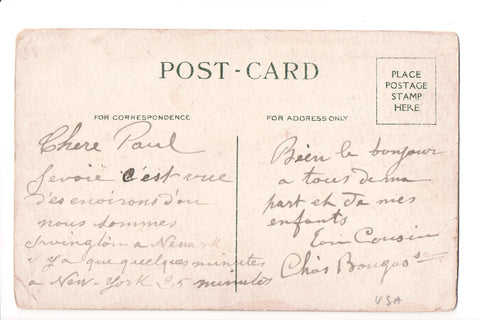 POST-CARD
PLACE
POSTAGE
STAMP
HERE
FOR CORRESPONDENCE
Chere Paul
Jevoië c'est vue
des environs d'ou
nous sommes
Irvington a Newark
il y a que quelques minutes
a New-York 25 minutes
FOR ADDRESS ONLY
Bien le bonjour
a tous de ma
part et de mes
enfants
Ton Cousin
Chas
USA